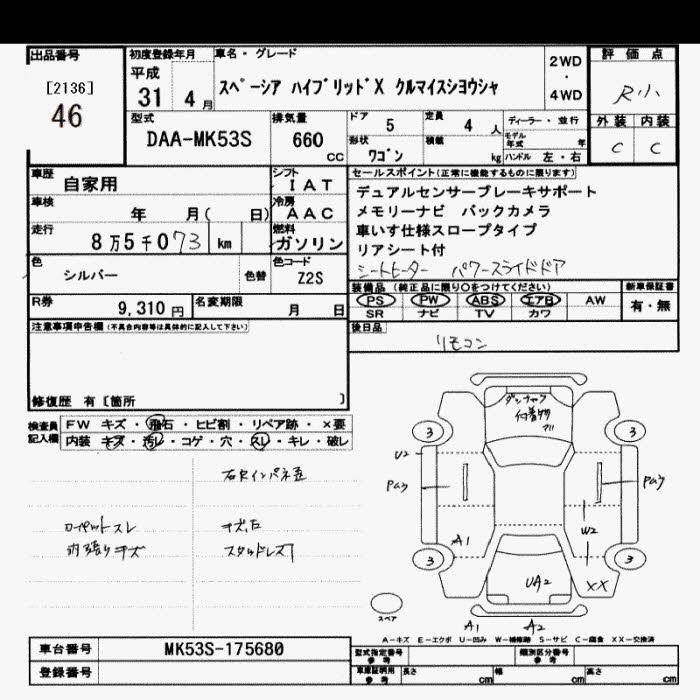 出品番号
[2136]
46
初度登録年月
平成
31 4 月
車名・グレード
スペーシア ハイブリッドX クルマイスシヨウシャ
2WD
・
4WD
評価点
R小
外装 内装
C C
型式
DAA-MK53S
排気量
660 cc
ドア 5
定員 4 人
形状 ワゴン
積載 kg
ディーラー・並行
モデル年式 年
ハンドル 左・右
車歴 自家用
車検 年 月( 日)
走行 8万5千073 km
シフト IAT
冷房 AAC
燃料 ガソリン
色 シルバー 色替
色コード Z2S
R券 9,310 円
名変期限 月 日
セールスポイント(正常に機能するものに限ります)
デュアルセンサーブレーキサポート
メモリーナビ バックカメラ
車いす仕様スロープタイプ
リアシート付
シートヒーター パワースライドドア
装備品 (純正品に限り○をつけてください)
PS PW ABS エアB AW
SR ナビ TV カワ
新車保証書
有・無
後日品
リモコン
注意事項申告欄(不具合内容等は具体的に記入して下さい)
修復歴 有[箇所 ]
検査員記入欄
FW キズ・飛石・ヒビ割・リペア跡・×要
内装 キズ・汚レ・コゲ・穴・スレ・キレ・破レ
キズ
スタッドレス
3 3
U2
A1
W2
3 3
UA2
XX
A1 A2
スペア
A-キズ E-エクボ U-凹み W-補修跡 S-サビ C-腐食 XX-交換済
車台番号 MK53S-175680
登録番号
型式指定番号 参考
類別区分番号 参考
車庫証明用 参考
長さ cm 幅 cm 高さ cm